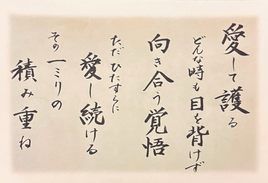 愛して護る
どんな時も目を背けず
向き合う覚悟
ただひたすらに
愛し続ける
その一ミリの
積み重ね